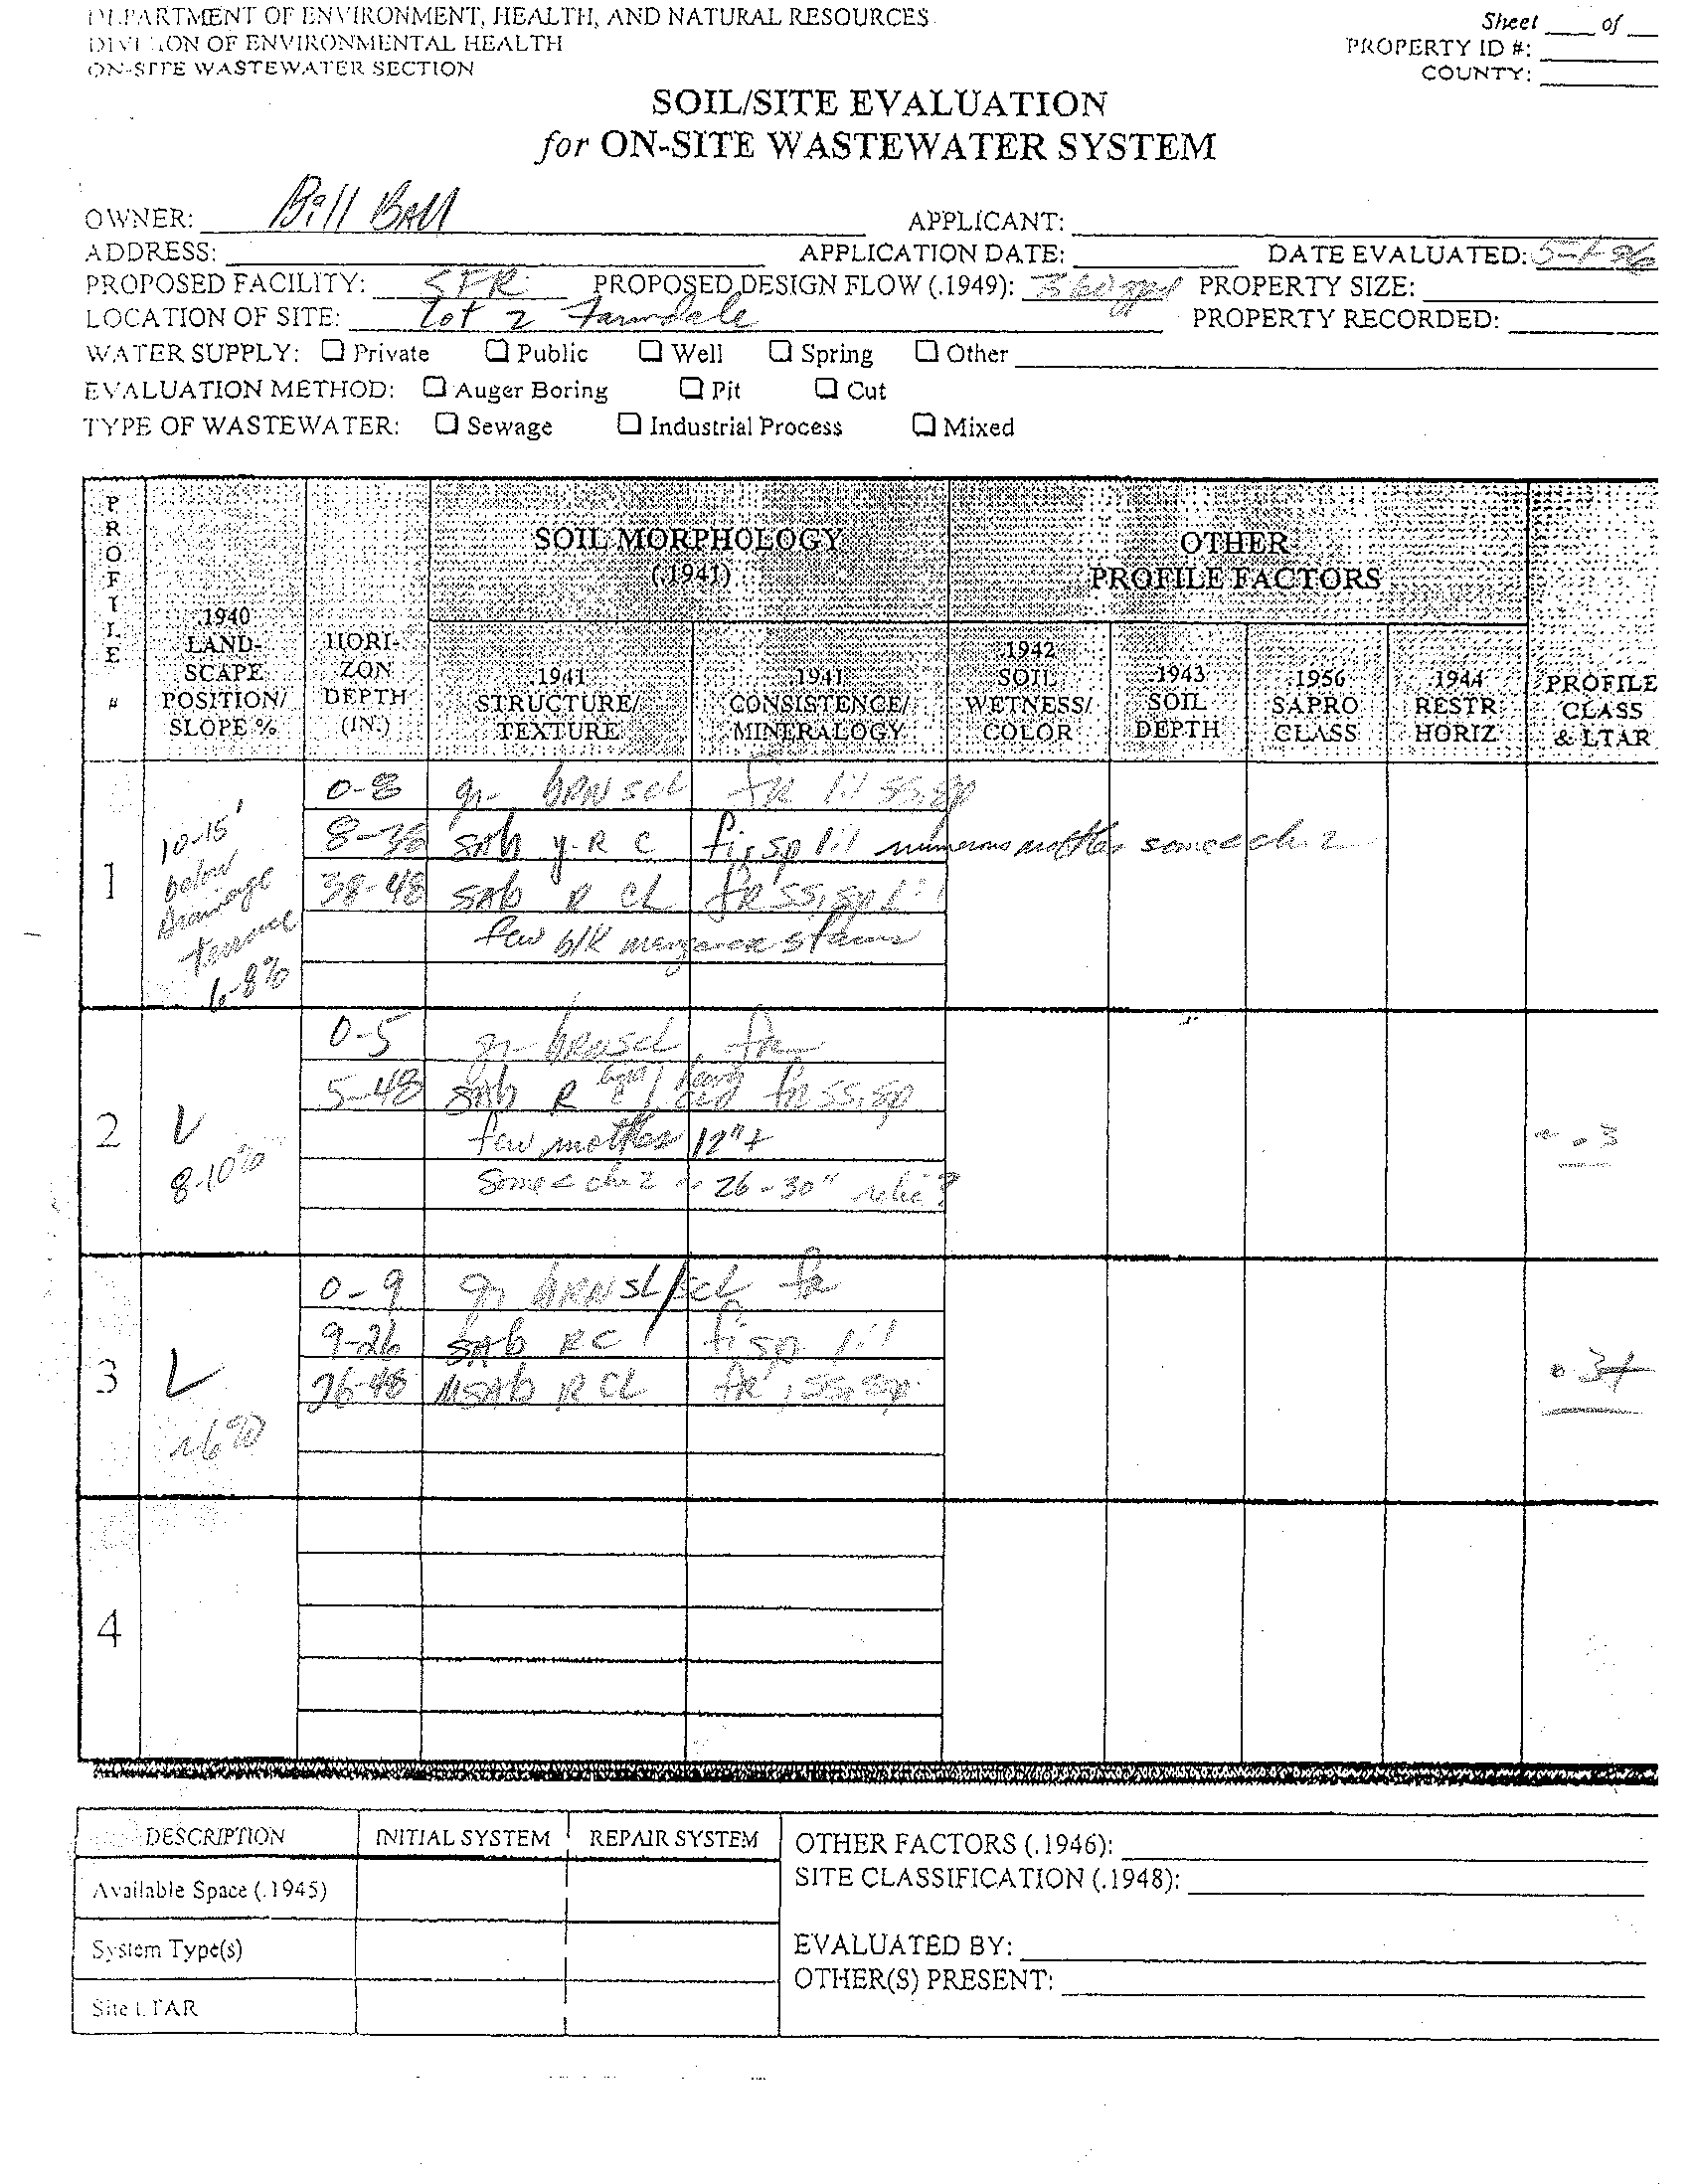 DEPARTMENT OF ENVIRONMENT, HEALTH, AND NATURAL RESOURCES
DIVISION OF ENVIRONMENTAL HEALTH
ON-SITE WASTEWATER SECTION
Sheet ____ of ___
PROPERTY ID #:
COUNTY:
SOIL/SITE EVALUATION
for ON-SITE WASTEWATER SYSTEM
OWNER: Bill Ball APPLICANT:
ADDRESS: APPLICATION DATE: DATE EVALUATED: 5-1-96
PROPOSED FACILITY: SFR PROPOSED DESIGN FLOW (.1949): 360 gpd PROPERTY SIZE:
LOCATION OF SITE: Lot 2 Farmdale PROPERTY RECORDED:
WATER SUPPLY: ☐ Private ☐ Public ☐ Well ☐ Spring ☐ Other
EVALUATION METHOD: ☐ Auger Boring ☐ Pit ☐ Cut
TYPE OF WASTEWATER: ☐ Sewage ☐ Industrial Process ☐ Mixed
PROFILE #
.1940 LAND-SCAPE POSITION/ SLOPE %
HORI-ZON DEPTH (IN.)
SOIL MORPHOLOGY (.1941)
.1941 STRUCTURE/ TEXTURE
.1941 CONSISTENCE/ MINERALOGY
OTHER PROFILE FACTORS
.1942 SOIL WETNESS/ COLOR
.1943 SOIL DEPTH
.1956 SAPRO CLASS
.1944 RESTR HORIZ
PROFILE CLASS & LTAR
1
10-15' below drainage terrace 6-8%
0-8 gr brn scl fr 1:1 ss, sp
8-38 sab y-R C fi, sp 1:1 numerous mottles some ≤ ch. 2
38-48 sab R CL fr ss, sp 1:1
few blk manganese stains
2
L
8-10%
0-5 gr brn scl, fr
5-48 sab R fr ss, sp
few mottles 12"+
some ≤ ch 2 ~ 26-30" relic?
~ .3
3
L
~6%
0-9 gr brn sl/scl fr
9-26 sab RC fi sp 1:1
26-48 Msab R CL fr, ss, sp
.3+
4
DESCRIPTION INITIAL SYSTEM REPAIR SYSTEM
Available Space (.1945)
System Type(s)
Site LTAR
OTHER FACTORS (.1946):
SITE CLASSIFICATION (.1948):
EVALUATED BY:
OTHER(S) PRESENT: